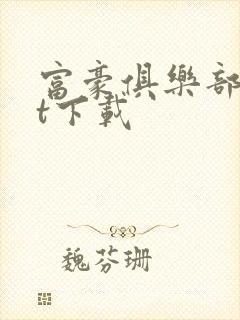 富豪俱樂部
t下載
魏芬珊